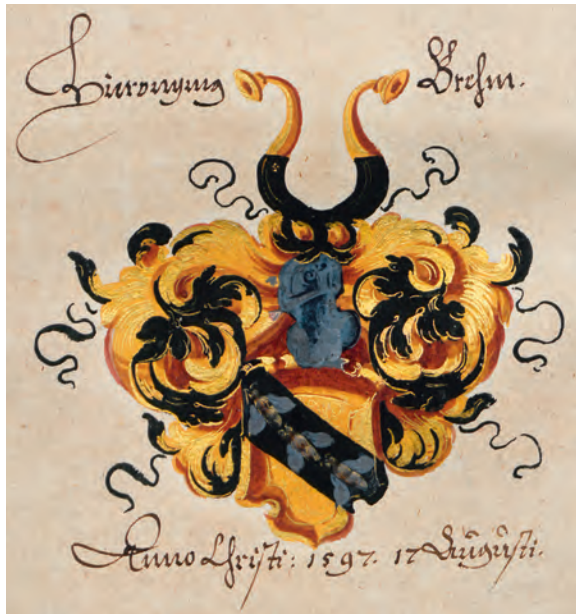 Hieronymus Brehm.
Anno Christi: 1597. 17 Augusti.